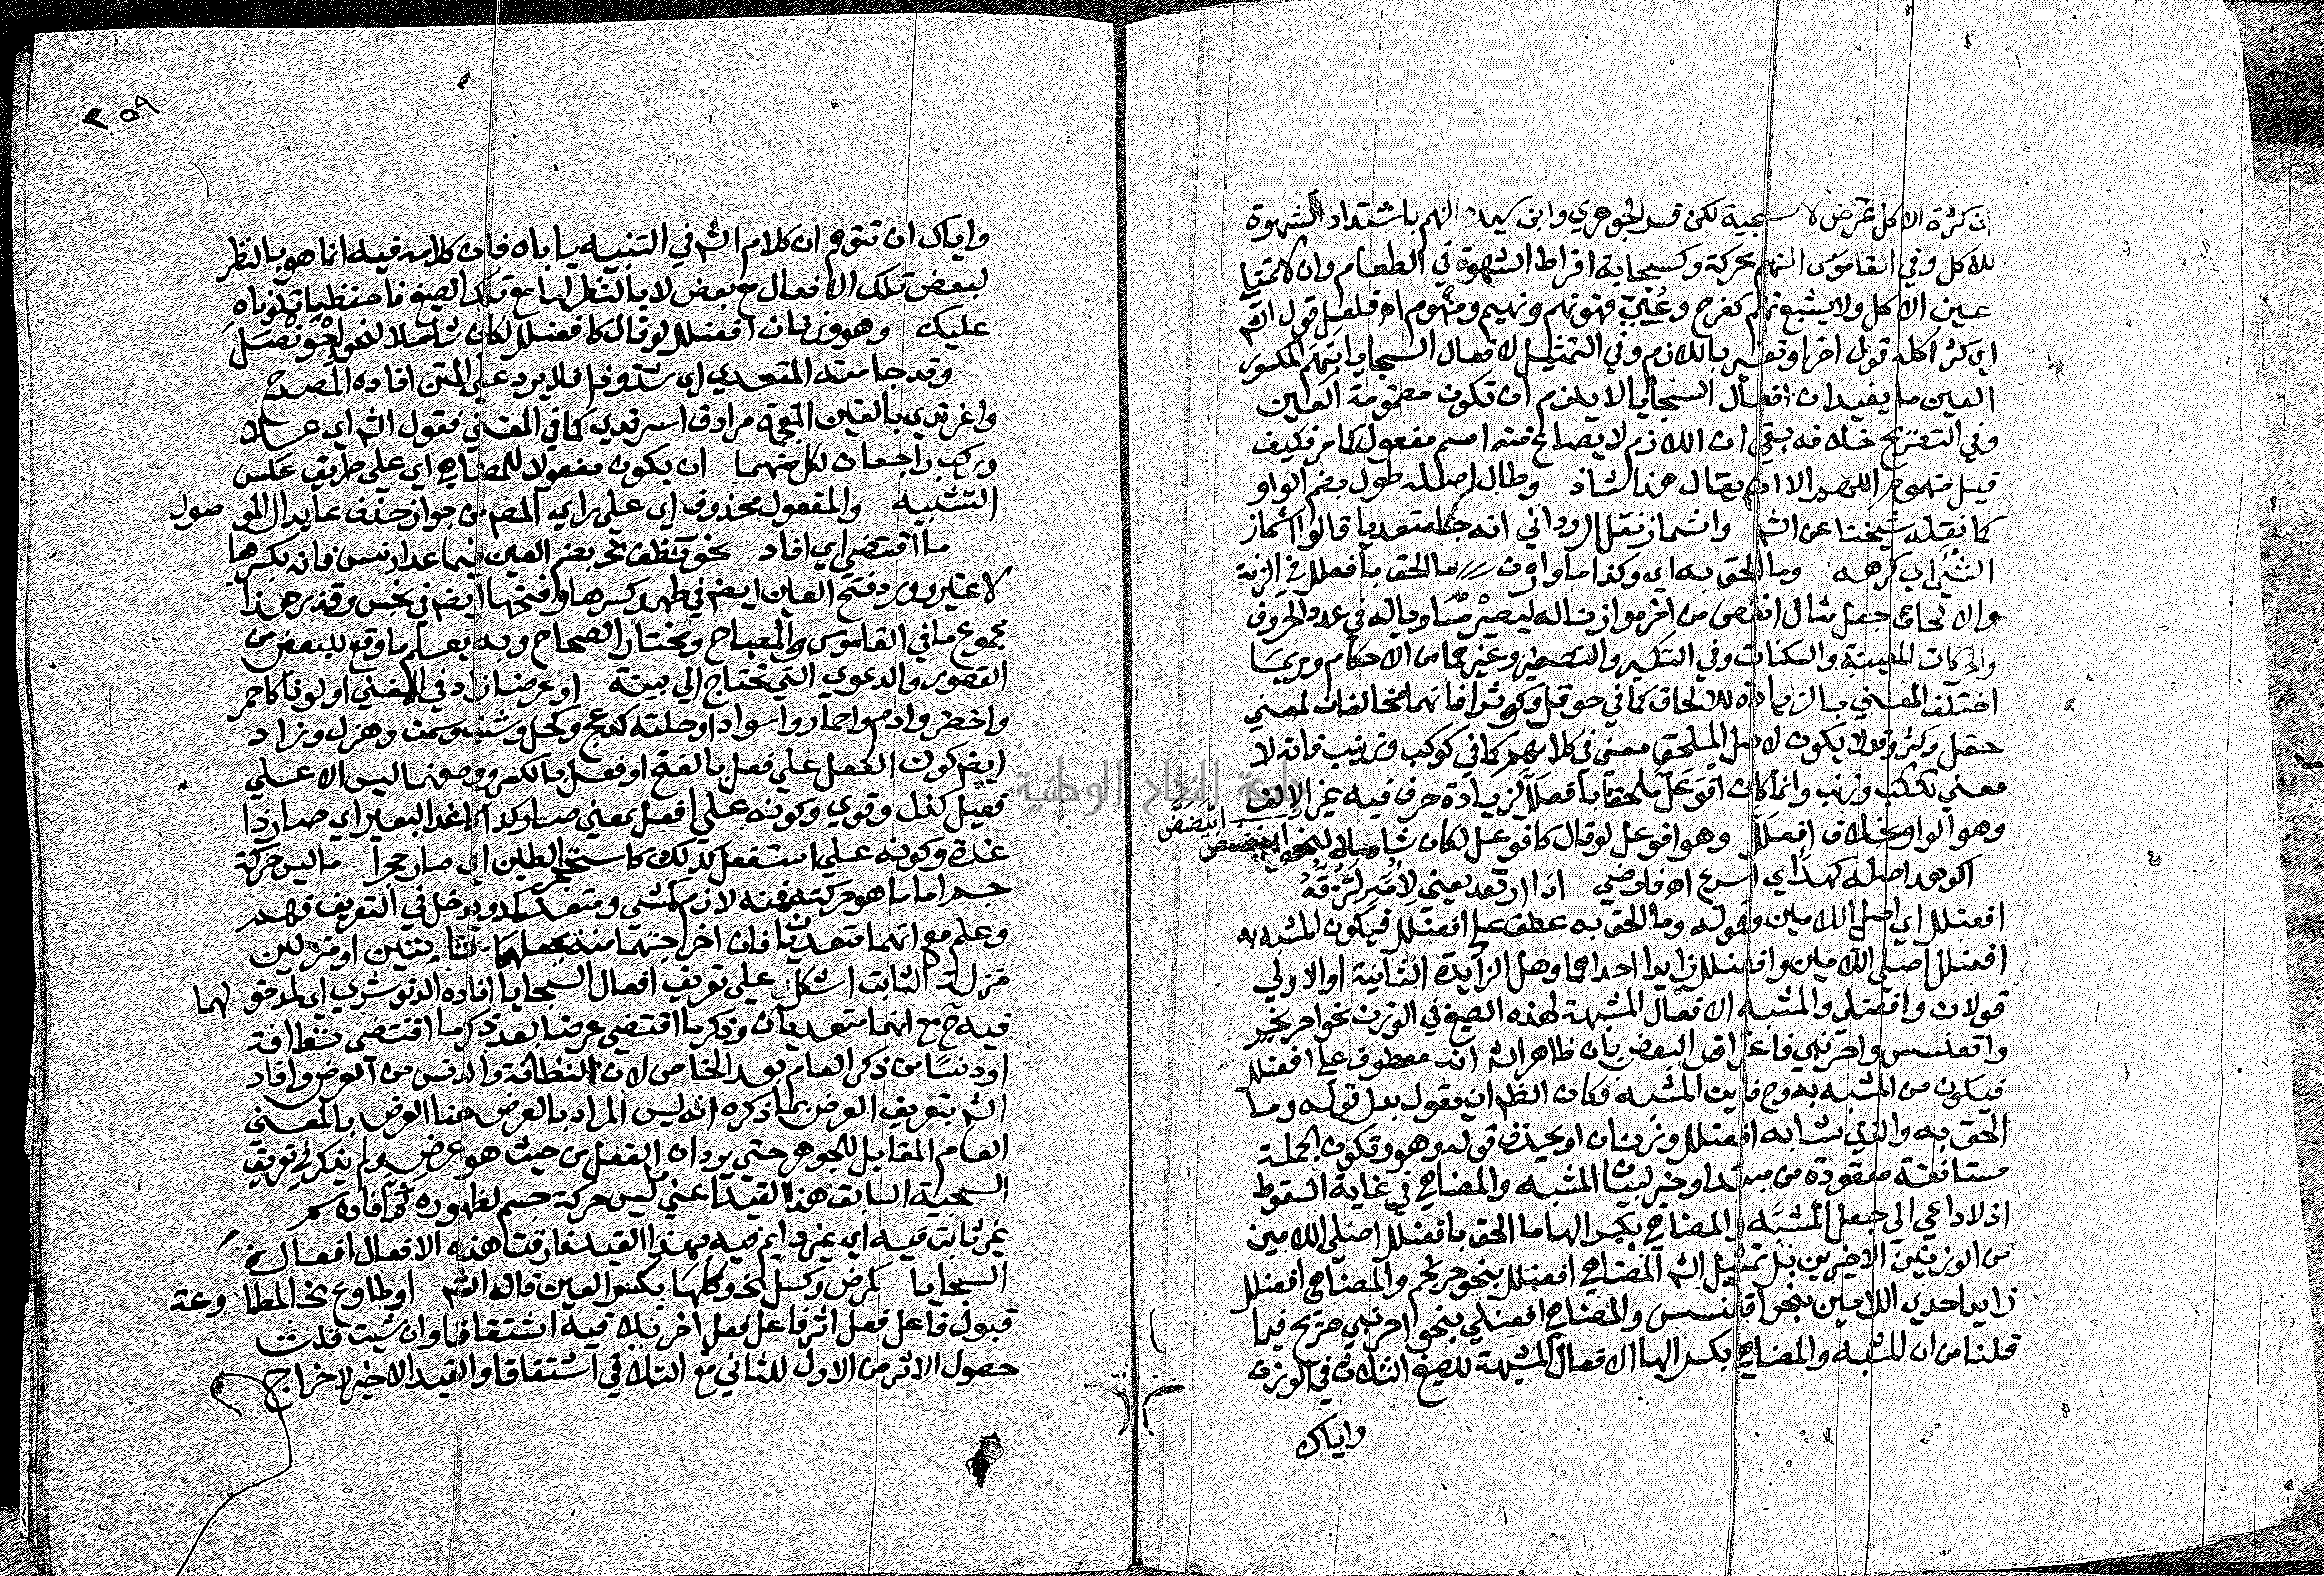 ان كثرة الاكل عرض لا سجية لكن فسر الجوهري وابن سيده النهم باشتداد الشهوة
للاكل وفي القاموس النهم محركة وكسحابة افراط الشهوة في الطعام وان لا تمتلي
عين الاكل ولا يشبع نهم كفرح وعُنِيَ فهو نهم ونهيم ومنهوم اه فلعل قول الشم
اي كثر اكله قول اخر او تفسير باللازم وفي التمثيل لافعال السجايا بنهم المكسور
العين ما يفيد ان افعال السجايا لا يلزم ان تكون مضمومة العين
وفي التصريح خلافه بقي ان اللازم لا يصاغ منه اسم مفعول كما مر فكيف
قيل منهوم اللهم الا ان يقال هذا شاذ وطال اصله طول بضم الواو
كما نقله شيخنا عن الشم واشماز نقل الروداني انه جا متعديا قالوا اشماز
الشئ اي كرهه وما الحق به اي وكذا ما وازن ما الحق بافعلل في الزنة
والالحاق جعل مثال انقص من اخر موازنا له ليصير مساويا له في عدد الحروف
والحركات المعينة والسكنات وفي التكسير والتصغير وغيرهما من الاحكام وربما
اختلف المعنى بالزيادة للالحاق كما في حوقل وكوثر فانهما مخالفان لمعنى
حقل وكثر وقد لا يكون لاصل الملحق معنى في كلامهم كما في كوكب وزينب فانه لا
معنى لككب وزنب وانما كان افوعل ملحقا بافعلل لزيادة حرف فيه غير الالف
وهو الواو بخلاف افعلل وهو افوعل لو قال كافوعل لكان شاملا لنحو ابيضض
اكوهد اصله كهد اي اسرع اه فارضي اذا ارتعد يعني لامه لتزقه
افعنلل اي اصلي اللامين وقوله وما الحق به عطف على افعنلل فيكون المشبه به
افعنلل اصلي اللامين وافعنلل زايد احداهما وهل الزايدة الثانية او الاولى
قولان وافعنلى والمشبه الافعال المشبهة لهذه الصيغ في الوزن نحو احرنجم
واقعنسس واحرنبى فاعتراض البعض بان ظاهر الشم انه معطوف على افعنلل
فيكون من المشبه به وح فاين المشبه فكان الظم ان يقول بدل قوله وما
الحق به والذي شابه افعنلل وزنان او يحذف قوله وهو وتكون الجملة
مستانفة معقودة من مبتدا وخبر لبيان المشبه والمضاهي في غاية السقوط
اذ لا داعي الى جعل المشبه والمضاهي بكسر الها ما الحق بافعنلل اصلي اللامين
من الوزنين الاخيرين بل تمثيل الشم المضاهي افعنلل بنحو حرنجم والمضاهي افعنلل
زايد احدى اللامين بنحو اقعنسس والمضاهي افعنلى بنحو احرنبى صريح فيما
قلنا من ان المشبه والمضاهي بكسر الها الافعال المشبهة للصيغ الثلاث في الوزن
واياك
٢٥٩
واياك ان تتوهم ان كلام الشم في التنبيه ياباه فان كلامه فيه انما هو بالنظر
لبعض تلك الافعال مع بعض لا بالنظر لها مع تلك الصيغ فاحفظ ما تلوناه
عليك وهو وزنان افعنلل لو قال كافعنلل لكان شاملا لنحو احونصل
وقد جا منه المتعدي اي شذوذا فلا يرد على المتن افاده المصرح
واغرندى بالغين المعجمة مرادف اسرندى كما في المغني فقول الشم اي علاه
وركبه راجعان لكل منهما ان يكون مفعولا للمضاهي اي على طريق عكس
التشبيه والمفعول محذوف اي على راي المصم من جواز حذف عايد ال الموصول
ما اقتضى اي افاد نحو نظف نحو بضم العين فيما عدا دنس فانه بكسرها
لا غير وورد فتح العين ايضم في طهر وكسرها وفتحها ايضم في نجس وقذر هذا
مجموع ما في القاموس والمصباح ومختار الصحاح وبه يعلم ما وقع للبعض من
القصور والدعوى التي تحتاج الى بينة او عرضا زاد في المغني او لونا كاحمر
واخضر وادم واحمار واسواد او حلية كدعج وكحل وشنب وسمن وهزل وزاد
ايضم كون الفعل على فعل بالفتح او فعل بالكسر ووصفهما ليس الا على
فعيل كذل وقوي وكونه على افعل بمعنى صار كذا كاغد البعير اي صار ذا
غدة وكونه على استفعل كذلك كاستحجر الطين اي صار حجرا ما ليس حركة
جسم اما ما هو حركته فمنه لازم كمشى ومتعد كمد ويدخل في التعريف فهم
وعلم مع انهما متعديان فان اخرجتهما منه بجعلهما ثابتين او منزلين
منزلة الثابت اشكل على تعريف افعال السجايا افاده الدنوشري اي لدخولهما
فيه ح مع انهما متعديان وذكر ما اقتضى عرضا بعد ذكر ما اقتضى نظافة
او دنسا من ذكر العام بعد الخاص لان النظافة والدنس من العرض وافاد
الشم بتعريف العرض بما ذكره انه ليس المراد بالعرض هنا العرض بالمعنى
العام المقابل للجوهر حتى يرد ان الفعل من حيث هو عرض ولم يذكر في تعريف
السجية السابق هذا القيد اعني ليس حركة جسم لظهوره ثم افاده سم
غير ثابت فيه اي غير دايم فيه بهذا القيد فارقت هذه الافعال افعال
السجايا كمرض وكسل نحو كلها بكسر العين قاله الشم او طاوع نحو المطاوعة
قبول فاعل فعل اثر فاعل فعل اخر يلاقيه اشتقاقا وان شيت قلت
حصول الاثر من الاول للثاني مع التلاقي اشتقاقا والقيد الاخير لاخراج
جامعة النجاح الوطنية